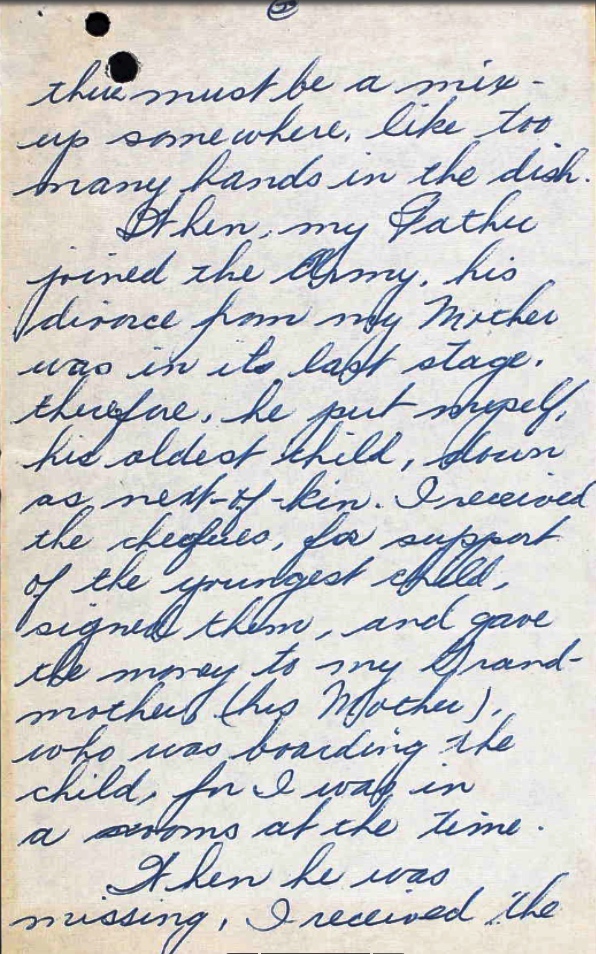 there must be a mix-
up somewhere, like too
many hands in the dish.
When, my Father
joined the Army, his
divorce from my Mother
was in its last stage.
therefore, he put myself,
his oldest child, down
as next-of-kin. I received
the cheques, for support
of the youngest child,
signed them, and gave
the money to my Grand-
mother (his Mother),
who was boarding the
child, for I was in
a rooms at the time.
When he was
missing, I received the